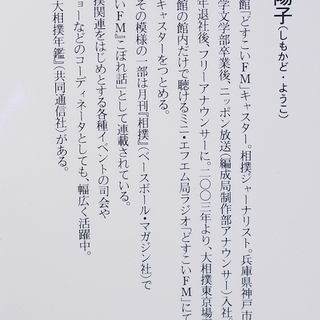 陽子(しもかど・ようこ)
館「どすこいFM」キャスター。相撲ジャーナリスト。兵庫県神戸市
学文学部卒業後、ニッポン放送(編成局制作部アナウンサー)入社。
年退社後、フリーアナウンサーに。二〇〇三年より、大相撲東京場
館の館内だけで聴けるミニ・エフエム局ラジオ「どすこいFM」にて
キャスターをつとめる。
その模様の一部は月刊『相撲』(ベースボール・マガジン社)で
いFM』こぼれ話」として連載されている。
撲関連をはじめとする各種イベントの司会や
ョーなどのコーディネータとしても、幅広く活躍中。
大相撲年鑑』(共同通信社)がある。